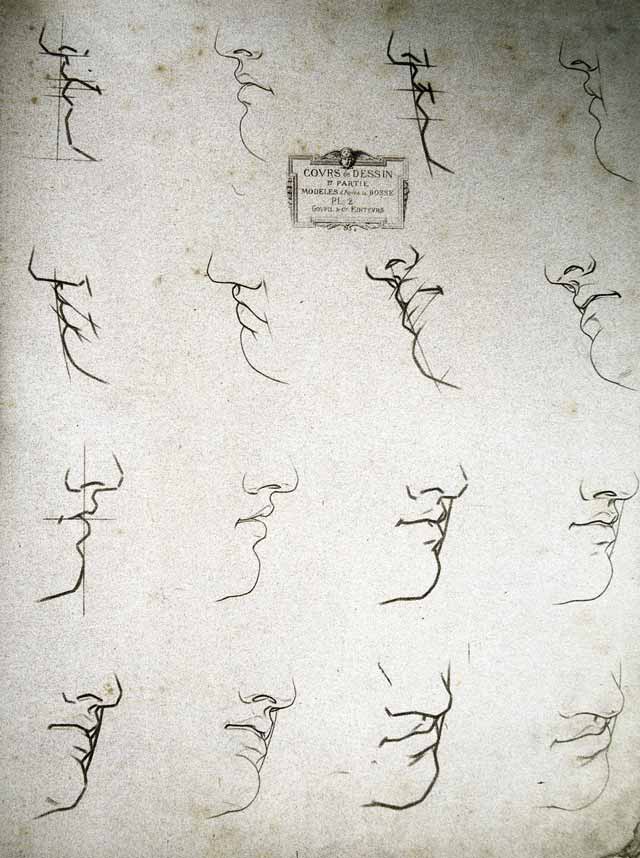 COVRS DE DESSIN
1RE PARTIE
MODELES d'Après la BOSSE
PL. 2
GOVPIL & Cie EDITEVRS